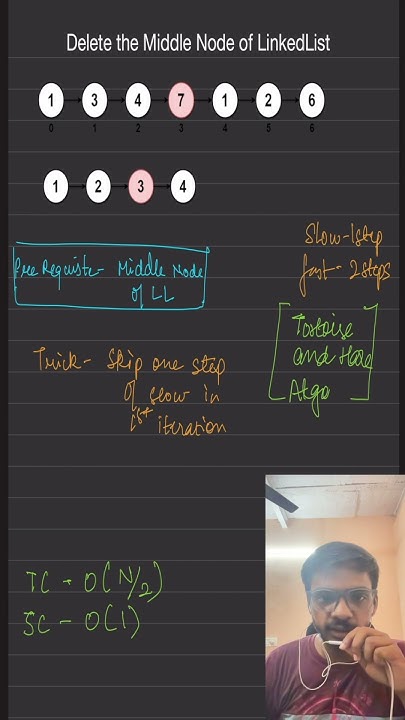 Delete the Middle Node of LinkedList
1 3 4 7 1 2 6
0 1 2 3 4 5 6
1 2 3 4
Slow-1step
fast - 2steps
Pre Requiste- Middle Node
of LL
Tortoise
and Hare
Algo
Trick - Skip one step
of slow in
1st iteration
TC - O(N/2)
SC - O(1)